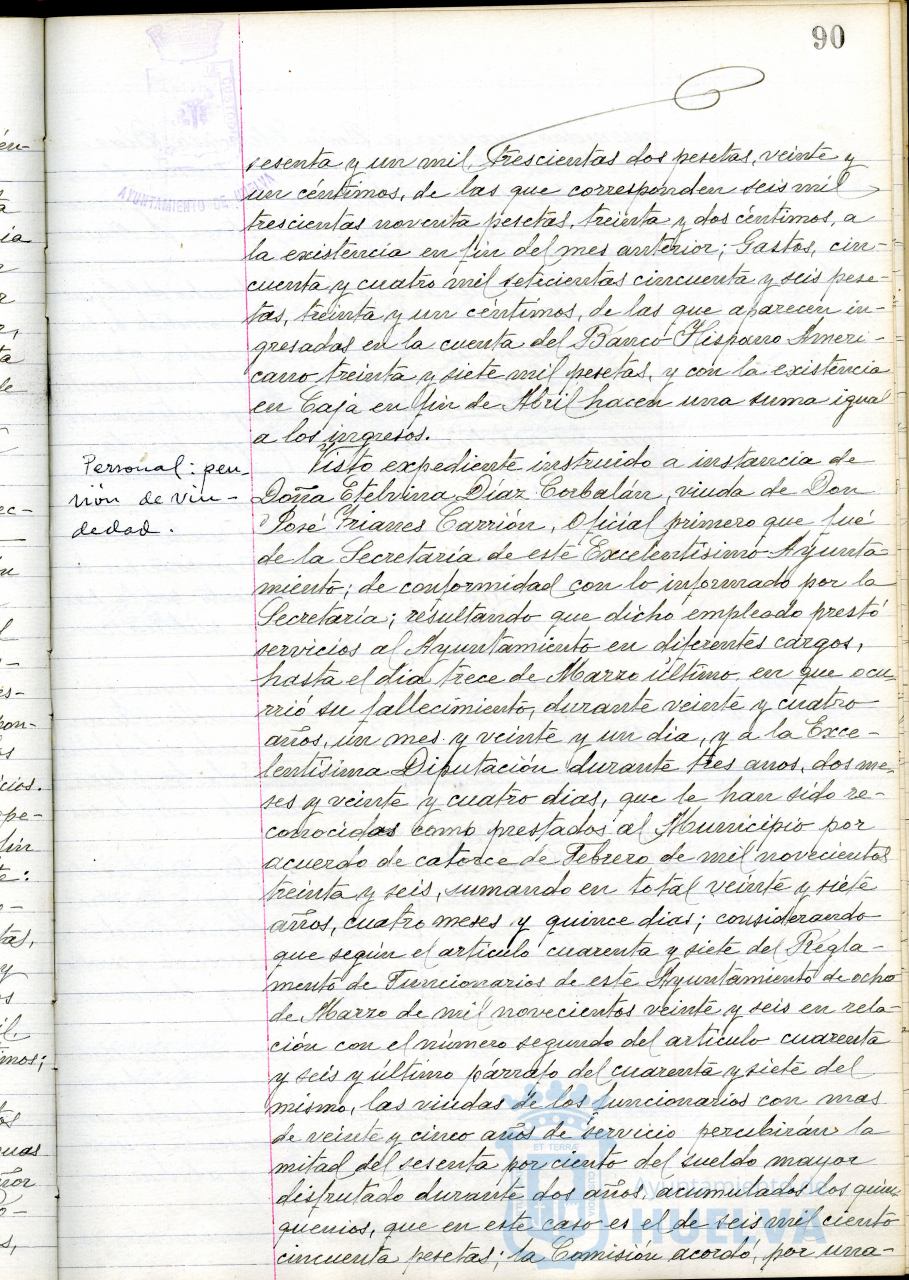 90
AYUNTAMIENTO DE HUELVA
sesenta y un mil trescientas dos pesetas, veinte y
un céntimos, de las que corresponden seis mil
trescientas noventa pesetas, treinta y dos céntimos, a
la existencia en fin del mes anterior; Gastos, cin-
cuenta y cuatro mil setecientas cincuenta y seis pese-
tas, treinta y un céntimos, de las que aparecen in-
gresadas en la cuenta del Banco Hispano Ameri-
cano treinta y siete mil pesetas, y con la existencia
en Caja en fin de Abril hacen una suma igual
a los ingresos.
Personal: pen-
sión de viu-
dedad.
Visto expediente instruido a instancia de
Doña Etelvina Díaz Corbalán, viuda de Don
José Frianes Carrión, Oficial primero que fué
de la Secretaría de este Excelentísimo Ayunta
miento; de conformidad con lo informado por la
Secretaría; resultando que dicho empleado prestó
servicios al Ayuntamiento en diferentes cargos,
hasta el dia trece de Marzo último, en que ocu-
rrió su fallecimiento, durante veinte y cuatro
años, un mes y veinte y un dia, y a la Exce-
lentísima Diputación durante tres anos, dos me-
ses y veinte y cuatro dias, que le han sido re-
conocidas como prestados al Municipio por
acuerdo de catorce de Febrero de mil novecientos
treinta y seis, sumando en total veinte y siete
años, cuatro meses y quince dias; considerando
que según el artículo cuarenta y siete del Regla-
mento de Funcionarios de este Ayuntamiento de ocho
de Marzo de mil novecientos veinte y seis en rela-
ción con el número segundo del artículo cuarenta
y seis y último párrafo del cuarenta y siete del
mismo, las viudas de los funcionarios con mas
de veinte y cinco años de servicio percibirán la
mitad del sesenta por ciento del sueldo mayor
disfrutado durante dos años, acumulados los quin-
quenios, que en este caso es el de seis mil ciento
cincuenta pesetas; la Comisión acordó, por una-
Ayuntamiento de
HUELVA